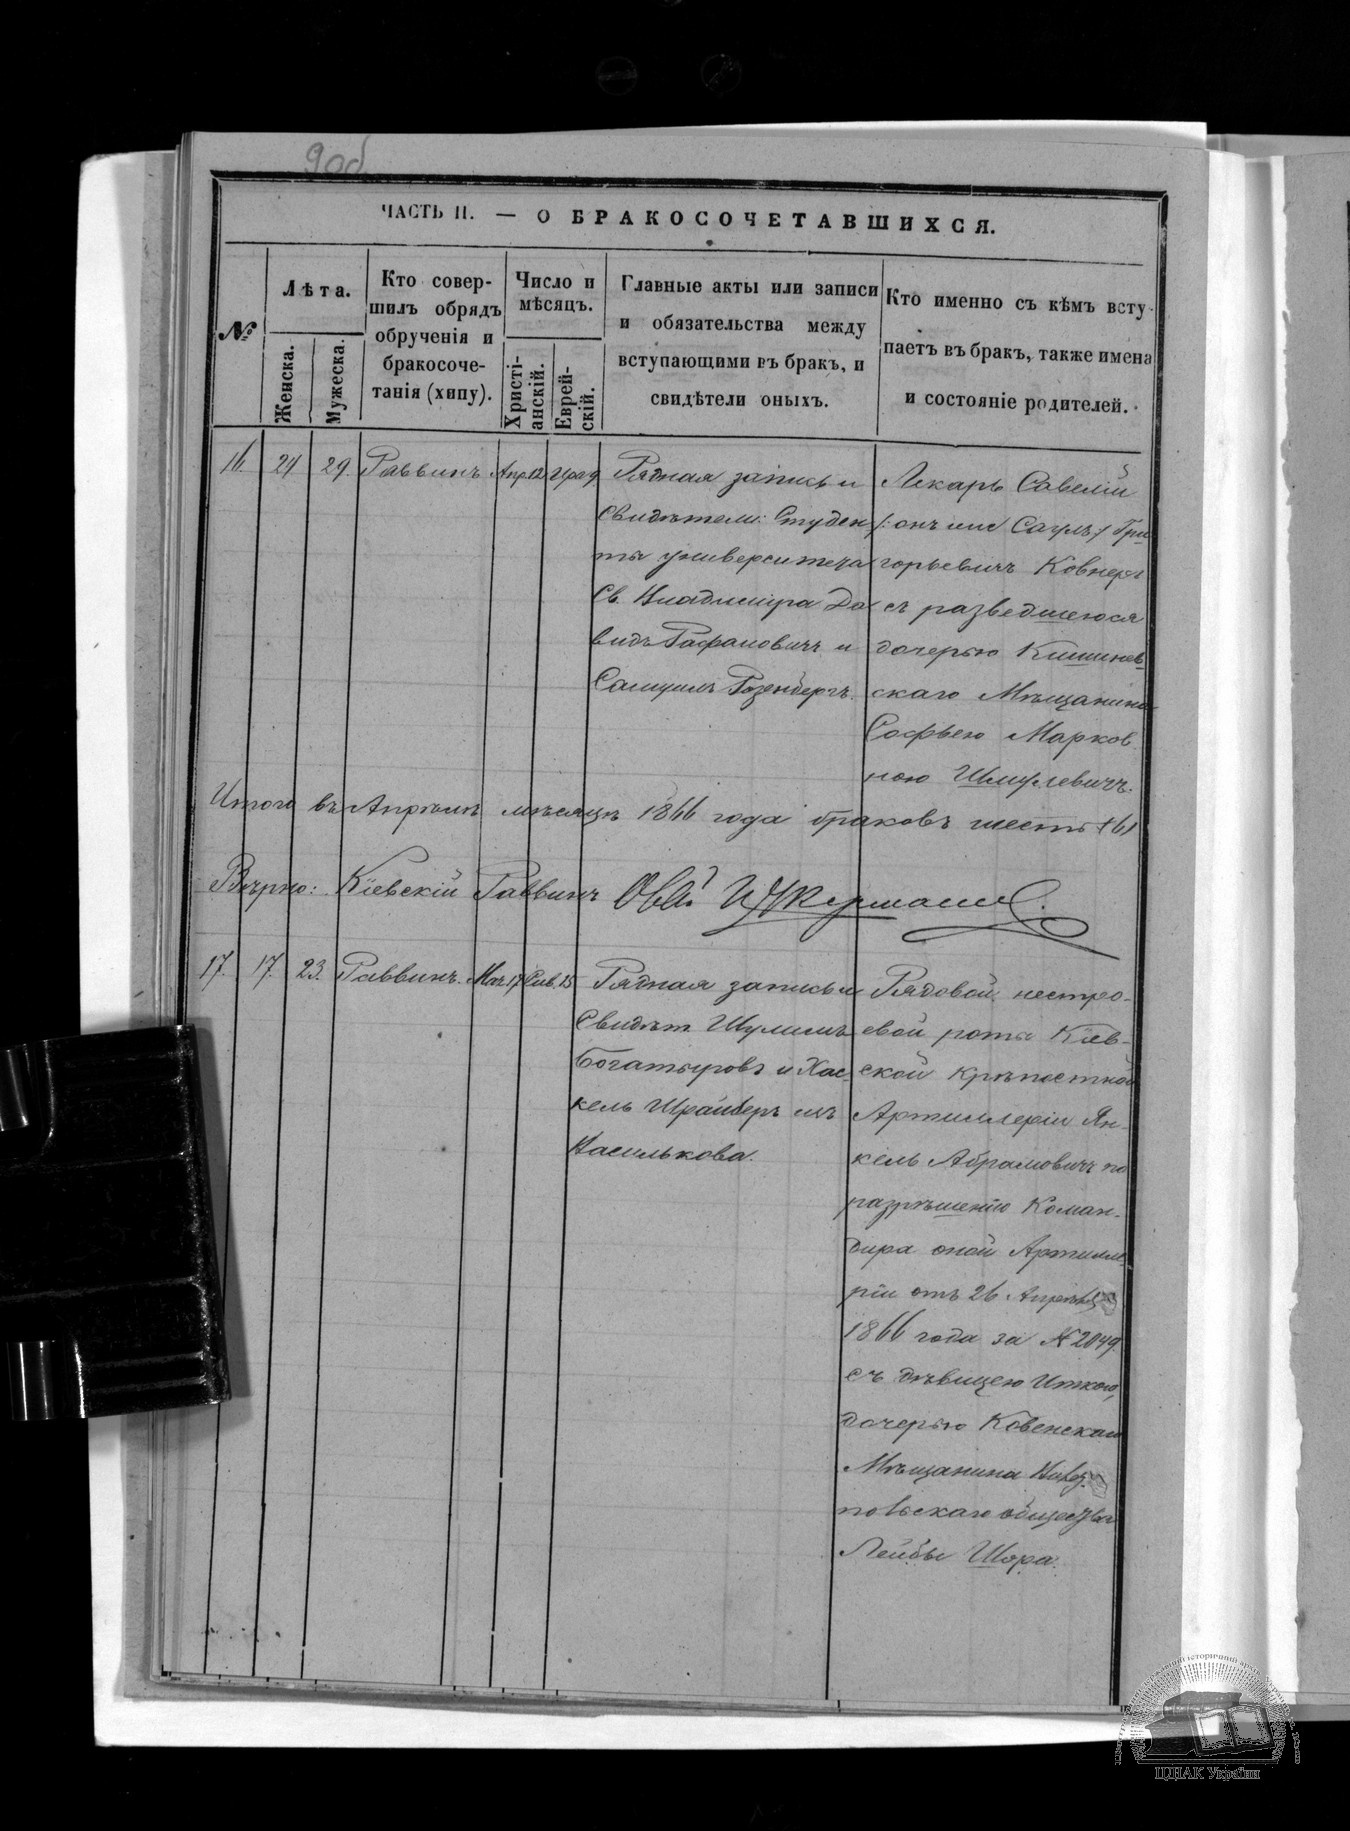 90об
ЧАСТЬ II. — О БРАКОСОЧЕТАВШИХСЯ.
№
Лѣта.
Женска.
Мужеска.
Кто совер-
шилъ обрядъ
обрученія и
бракосоче-
танія (хипу).
Число и
мѣсяцъ.
Христі-
анскій.
Еврей-
скій.
Главные акты или записи
и обязательства между
вступающими въ бракъ, и
свидѣтели оныхъ.
Кто именно съ кѣмъ всту-
паетъ въ бракъ, также имена
и состояніе родителей.
16. 24 29. Раввинъ Апр. 12
Рядная запись и
Свидѣтели: Студен-
ты университета
Св. Владиміра Да
видъ Рафаловичъ и
Самуилъ Розенбергъ.
Лекарь Савелій
/: онъ же Саулъ :/ Гри
горьевичъ Ковнеръ
съ разведшеюся
дочерью Кишинев-
скаго Мѣщанина
Софьею Марков
ною Шмулевичъ.
Итого въ Апрѣлѣ мѣсяцѣ 1866 года браковъ шесть (6)
Вѣрно: Кіевскій Раввинъ
17. 17. 23. Раввинъ. Мая 17 Сив. 15
Рядная запись и
Свидѣт. Шулимъ
Богатыровъ и Хас-
кель Шрайберъ изъ
Василькова.
Рядовой нестро-
евой роты Кіев-
ской крѣпостной
Артиллеріи Ян-
кель Абрамовичъ по
разрѣшенію Коман-
дира оной Артилле
ріи отъ 26 Апрѣля
1866 года за № 2049.
съ дѣвицею Иткою,
дочерью Ковенскаго
Мѣщанина
повскаго общества
Лейбы Шора.
ЦДІАК України